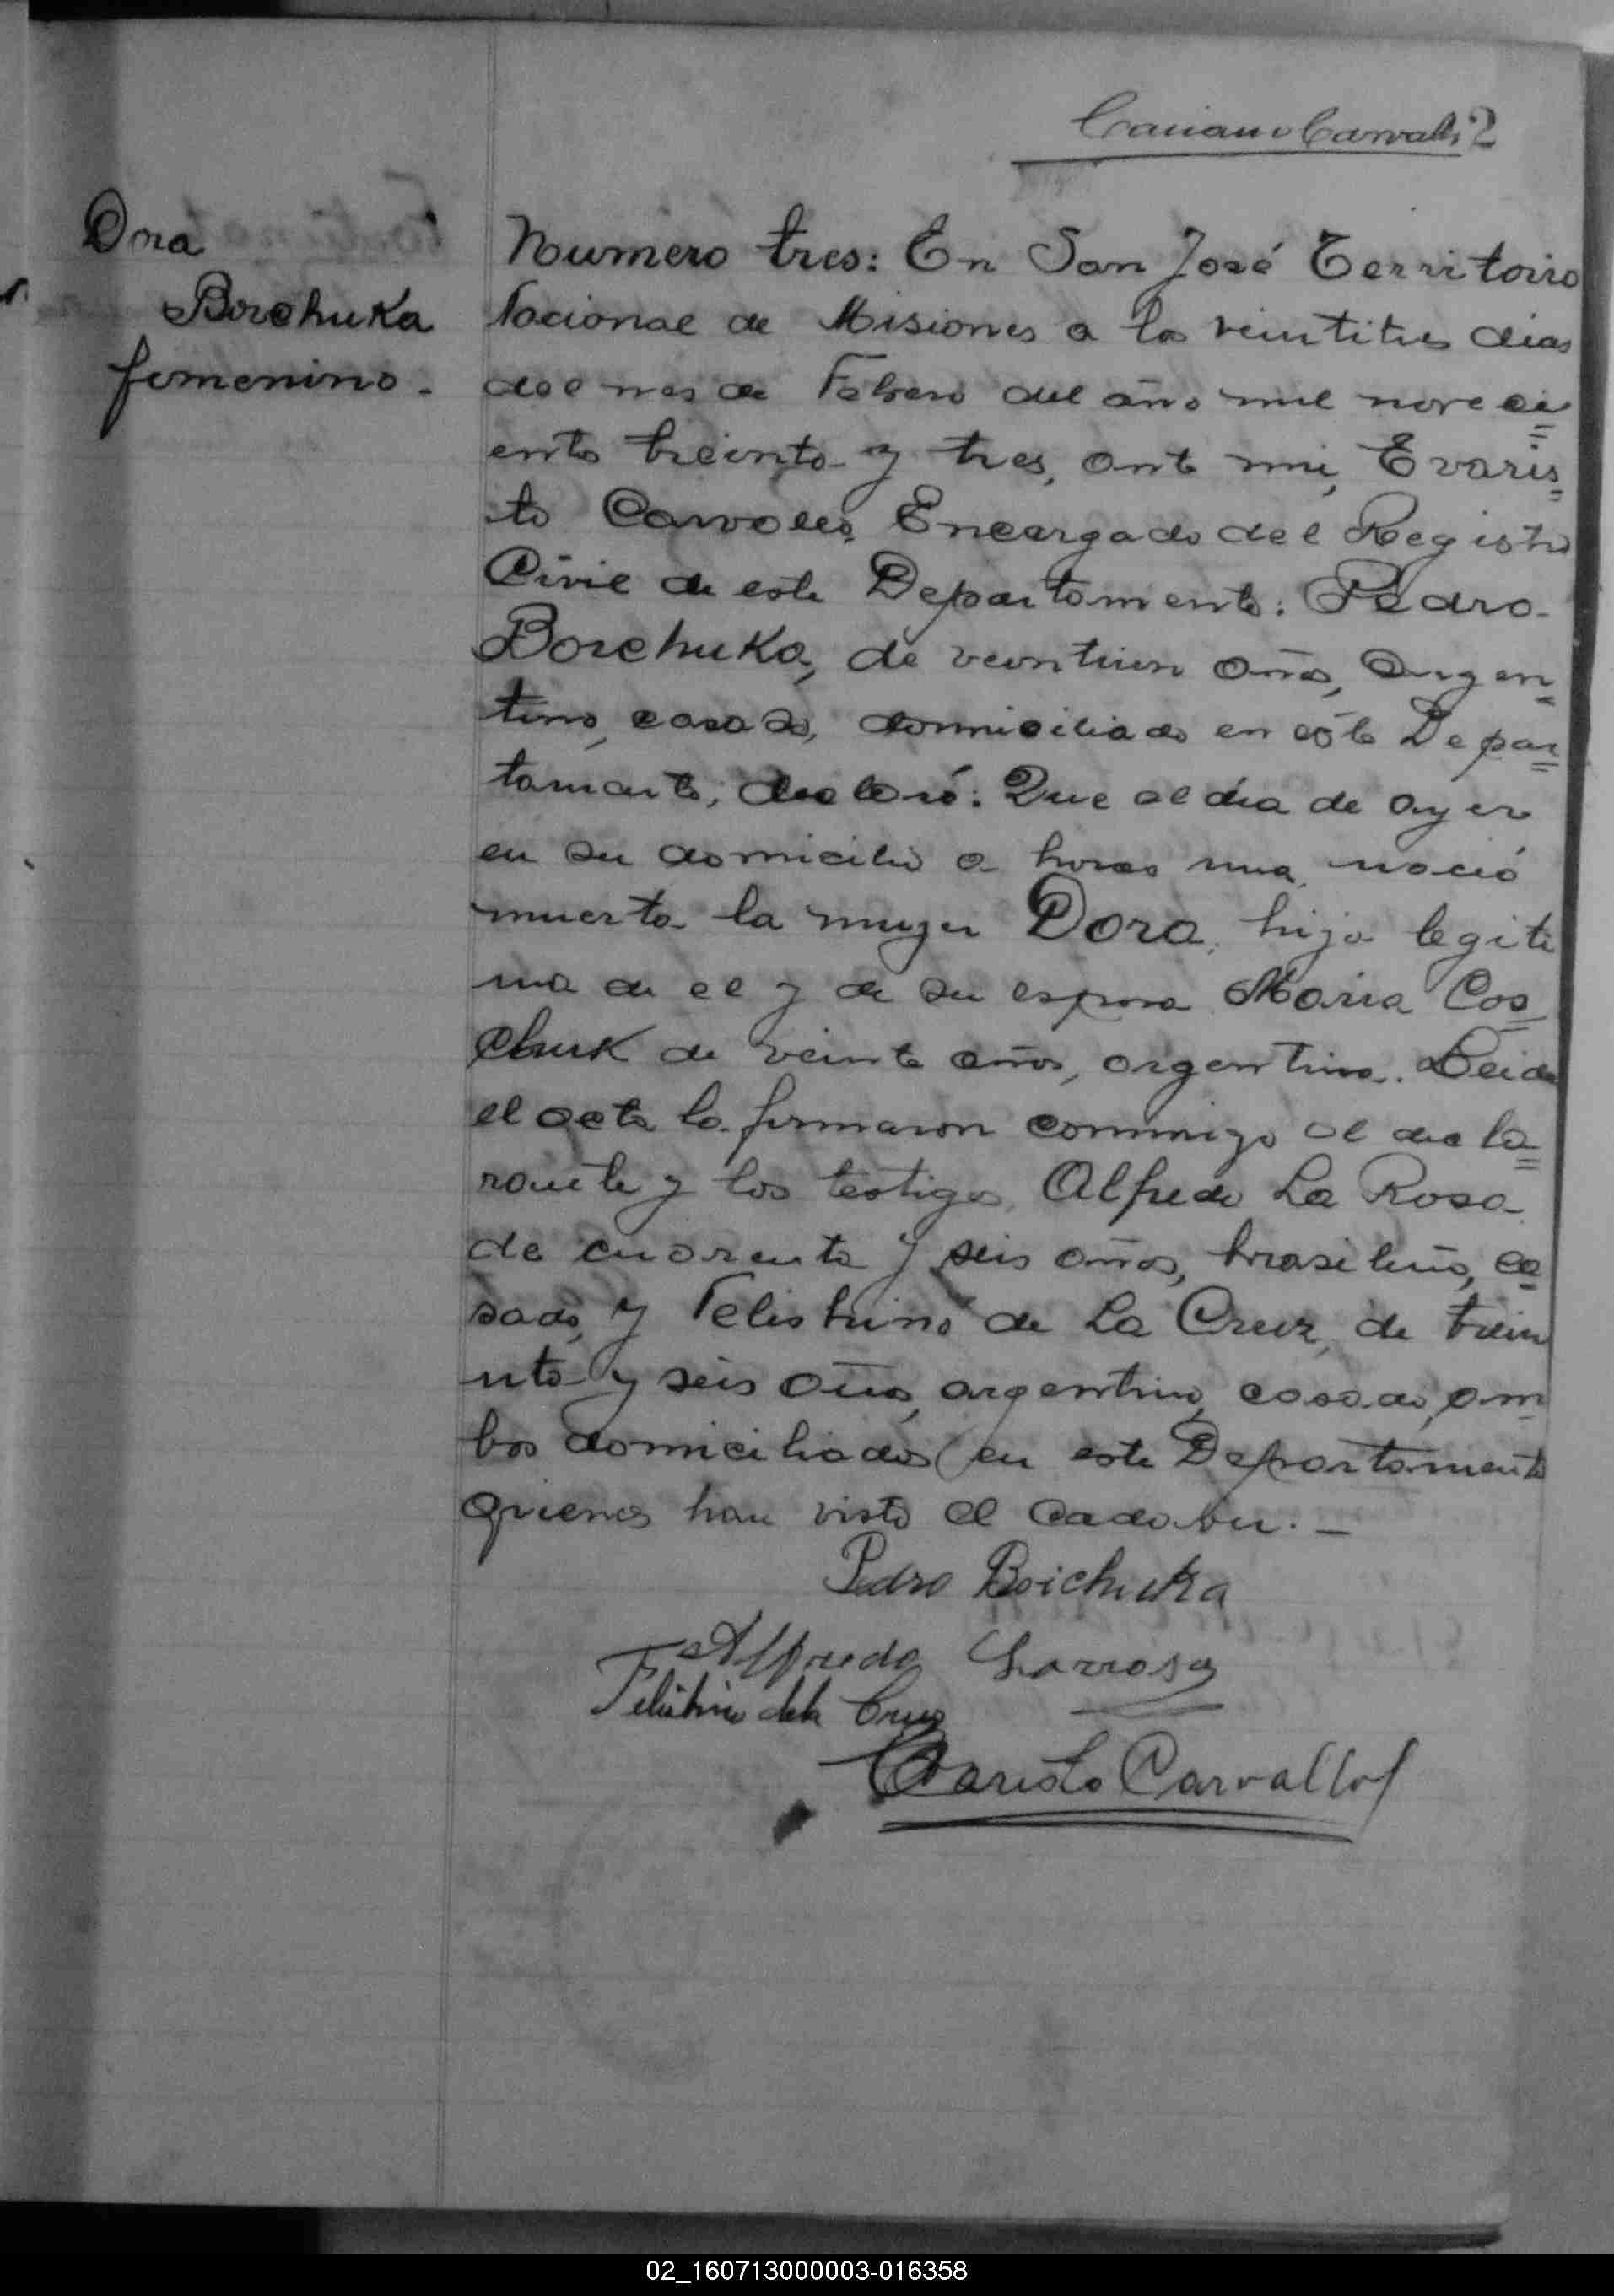 Carvallo 2
Dora
Boichuka
femenino.
Numero tres: En San José Territorio
Nacional de Misiones a los veintitres dias
del mes de Febrero del año mil noveci
entos treinta y tres, ante mi, Evaris
to Carvallo, Encargado del Registro
Civil de este Departamento: Pedro
Boichuka, de veintiun años, argen
tino, casado, domiciliado en este Depar
tamento, declaró: Que el dia de ayer
en su domicilio a horas una, nació
muerta la mujer Dora, hija legiti
ma de el y de su esposa Maria Cos
chuk de veinte años, argentina. Leida
el acta la firmaron conmigo el decla
rante y los testigos, Alfredo La Rosa
de cuarenta y seis años, brasileño, ca
sado, y Felistrino de La Cruz, de trein
nta y seis años, argentino, casado, am
bos domiciliados en este Departamento
quienes han visto el cadaver. —
Pedro Boichuka
Alfredo Larrosa
Felistrino dela Cruz
Evaristo Carvallo
02_160713000003-016358